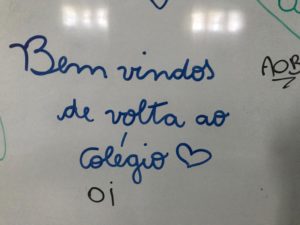 Bem vindos
AOB
de volta ao
colégio
oi